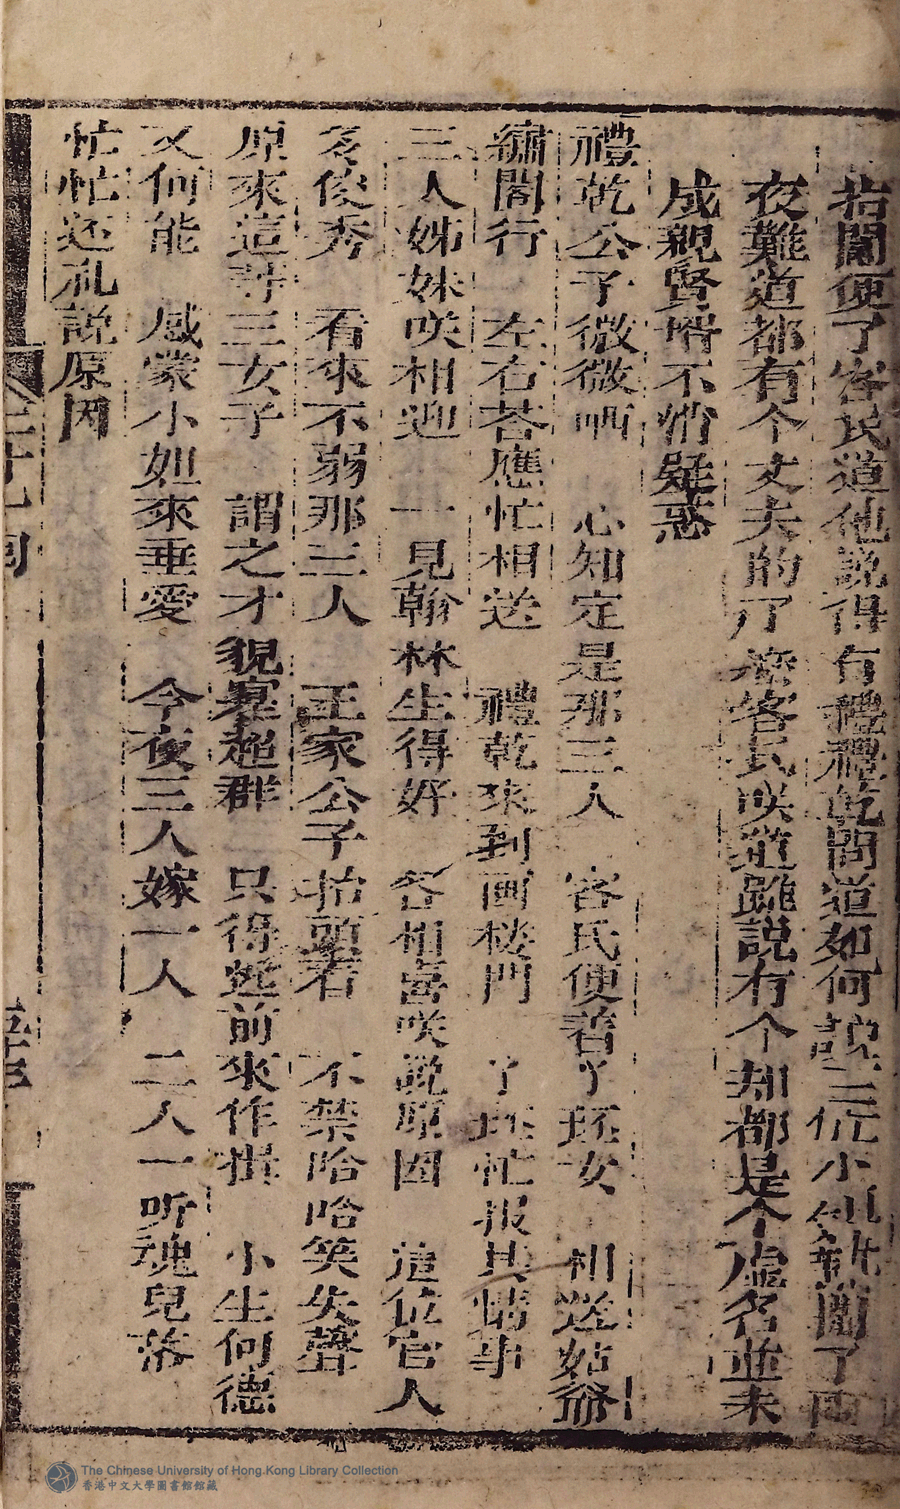 若鬧便了客氏道他說得有禮禮乾問道如何說三位小姐新鬧了兩
夜難道都有个丈夫的了麽客氏咲道雖說有个却都是个虛名並未
成親賢壻不消疑惑
禮乾公子微微哂 心知定是那三人 客氏便着丫环女 相送姑爺
綉閣行 左右荅應忙相送 禮乾來到画楼門 丫环忙报其情事
三人姊妹咲相迎 一見翰林生得好 各相喜咲說原因 這位官人
多俊秀 看來不弱那三人 王家公子抬頭看 不禁哈哈笑失聲
原來這等三女子 謂之才貌寔超群 只得趋前來作揖 小生何德
又何能 感蒙小姐來垂愛 今夜三人嫁一人 二人一听魂兒落
忙忙还礼說原因
二十九回
The Chinese University of Hong Kong Library Collection
香港中文大學圖書館館藏